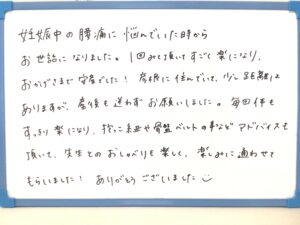 妊娠中の腰痛に悩んでいた時から
お世話になりました。1回みて頂いてすごく楽になり、
おかげさまで安産でした! 彦根に住んでいて、少し距離は
ありますが、産後も迷わずお願いしました。毎回体も
すっきり楽になり、抱っこ紐や骨盤ベルトの事などアドバイスも
頂いて、先生とのおしゃべりも楽しく、楽しみに通わせて
もらいました! ありがとうございました